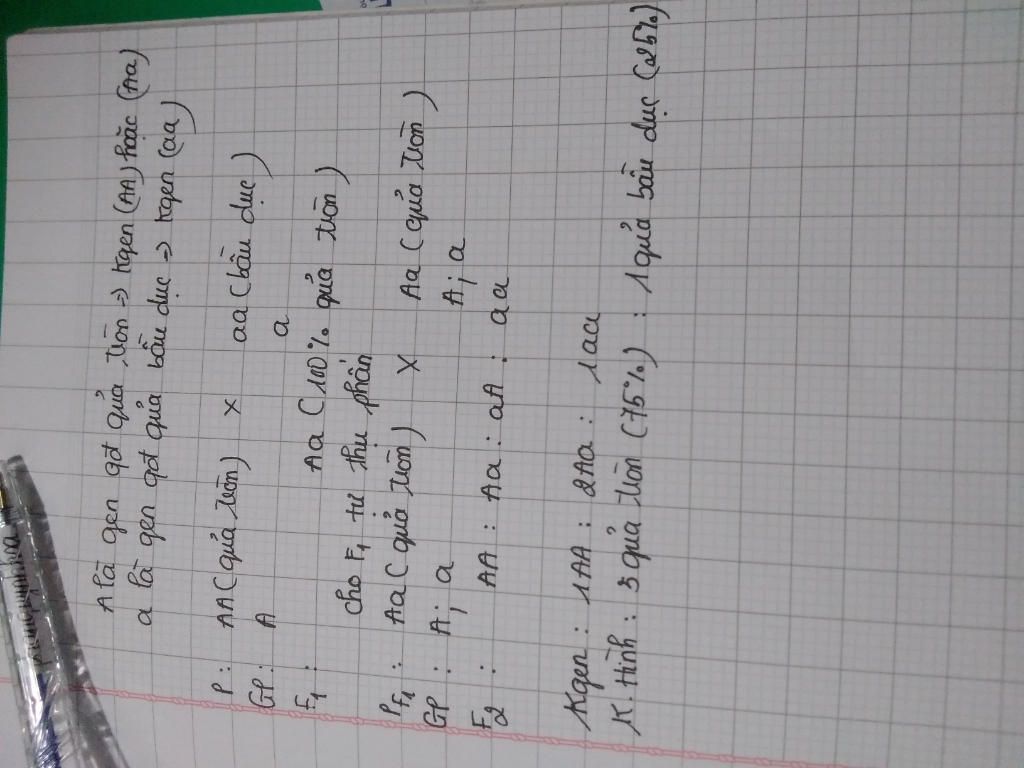 A là gen qđt quả tròn => kgen (AA) hoặc (Aa)
a là gen qđt quả bầu dục => kgen (aa)
P : AA (quả tròn) x aa (bầu dục)
GP : A a
F1 : Aa (100% quả tròn)
cho F1 tự thụ phấn
PF1 : Aa (quả tròn) x Aa (quả tròn)
GP : A ; a A ; a
F2 : AA : Aa : aA : aa
Kgen : 1AA : 2Aa : 1aa
K. Hình : 3 quả tròn (75%) : 1 quả bầu dục (25%)